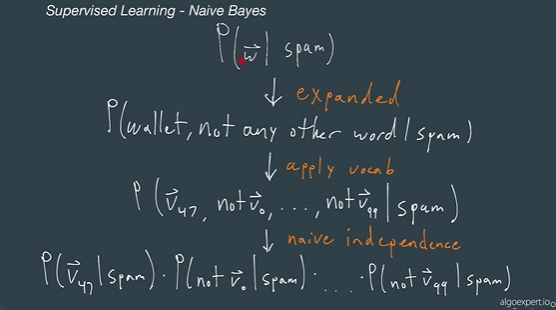 Supervised Learning - Naive Bayes
P(w⃗ | spam)
↓ expanded
P(wallet, not any other word | spam)
↓ apply vocab
P(v⃗₄₇, not v⃗₀, ..., not v⃗₉₉ | spam)
↓ naive independence
P(v⃗₄₇ | spam) · P(not v⃗₀ | spam) · ... · P(not v⃗₉₉ | spam)
algoexpert.io